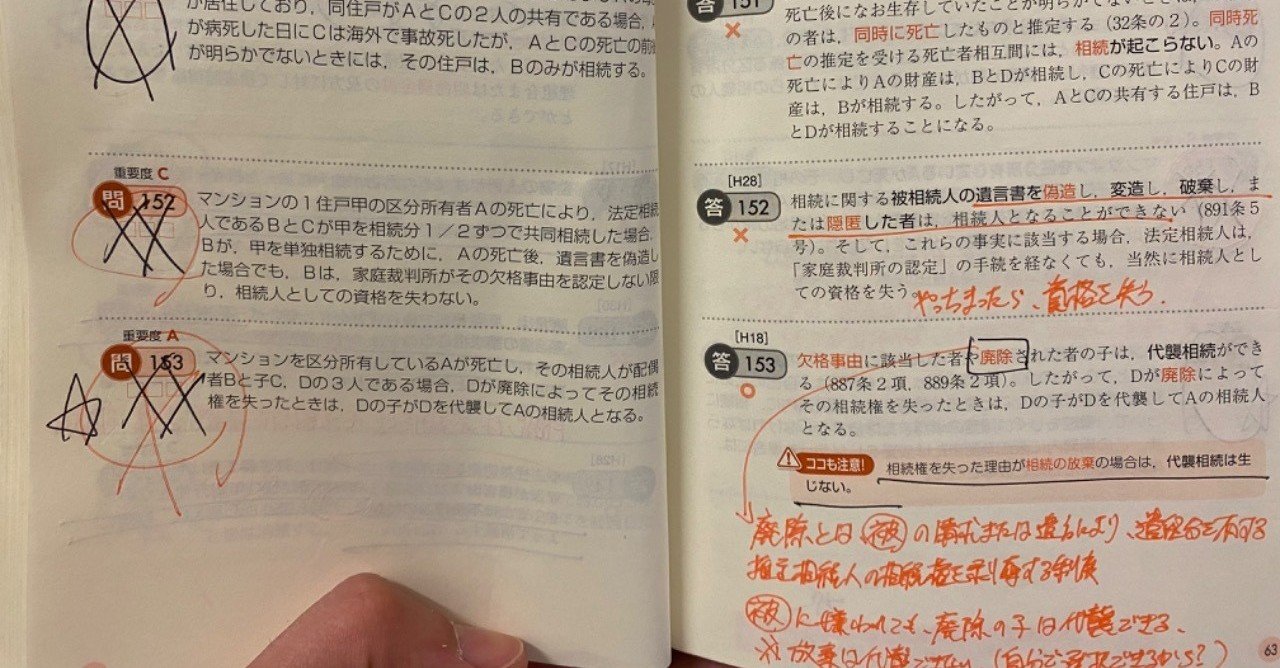 が居住しており，同住戸がAとCの2人の共有である場合，
が病死した日にCは海外で事故死したが，AとCの死亡の前後
が明らかでないときには，その住戸は，Bのみが相続する。
重要度 C
問 152
マンションの1住戸甲の区分所有者Aの死亡により，法定相続
人であるBとCが甲を相続分1／2ずつで共同相続した場合，
Bが，甲を単独相続するために，Aの死亡後，遺言書を偽造し
た場合でも，Bは，家庭裁判所がその欠格事由を認定しない限
り，相続人としての資格を失わない。
重要度 A
問 153
マンションを区分所有しているAが死亡し，その相続人が配偶
者Bと子C，Dの3人である場合，Dが廃除によってその相続
権を失ったときは，Dの子がDを代襲してAの相続人となる。
答 151
×
死亡後になお生存していたことが明らかでないときは，
の者は，同時に死亡したものと推定する（32条の2）。同時死
亡の推定を受ける死亡者相互間には，相続が起こらない。Aの
死亡によりAの財産は，BとDが相続し，Cの死亡によりCの財
産は，Bが相続する。したがって，AとCの共有する住戸は，B
とDが相続することになる。
[H28]
答 152
×
相続に関する被相続人の遺言書を偽造し，変造し，破棄し，ま
たは隠匿した者は，相続人となることができない（891条5
号）。そして，これらの事実に該当する場合，法定相続人は，
「家庭裁判所の認定」の手続を経なくても，当然に相続人とし
ての資格を失う。
やっちまったら、資格を失う.
[H18]
答 153
○
欠格事由に該当した者や廃除された者の子は，代襲相続ができ
る（887条2項，889条2項）。したがって，Dが廃除によって
その相続権を失ったときは，Dの子がDを代襲してAの相続人
となる。
ココも注意!
相続権を失った理由が相続の放棄の場合は，代襲相続は生
じない。
廃除とは被の請求または遺言により、遺留分を有する
推定相続人の相続権を剥奪する制度
被に嫌われても、廃除の子は代襲できる、
※放棄は代襲できない
63